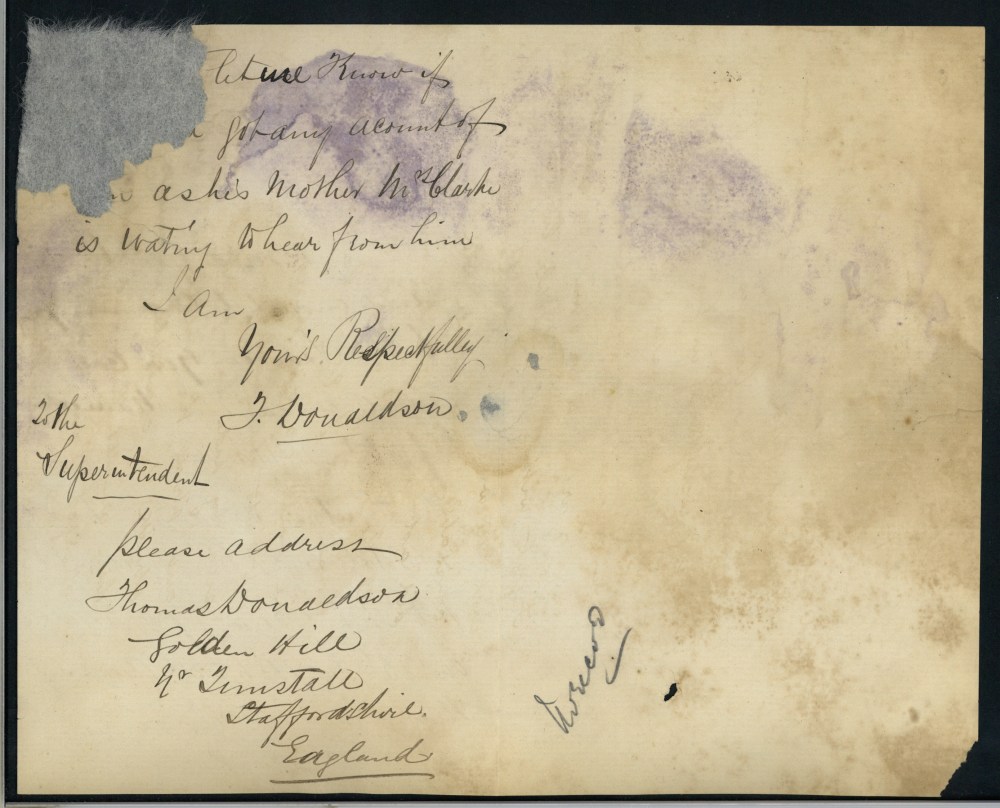 let me Know if
got any acount of
as his Mother Mrs Clarke
is wating to hear from him
I Am
Your's Respectfulley
T. Donaldson.
To the
Superintendent
please address
Thomas Donaldson
Golden Hill
Nr Tunstall
Staffordshire.
England